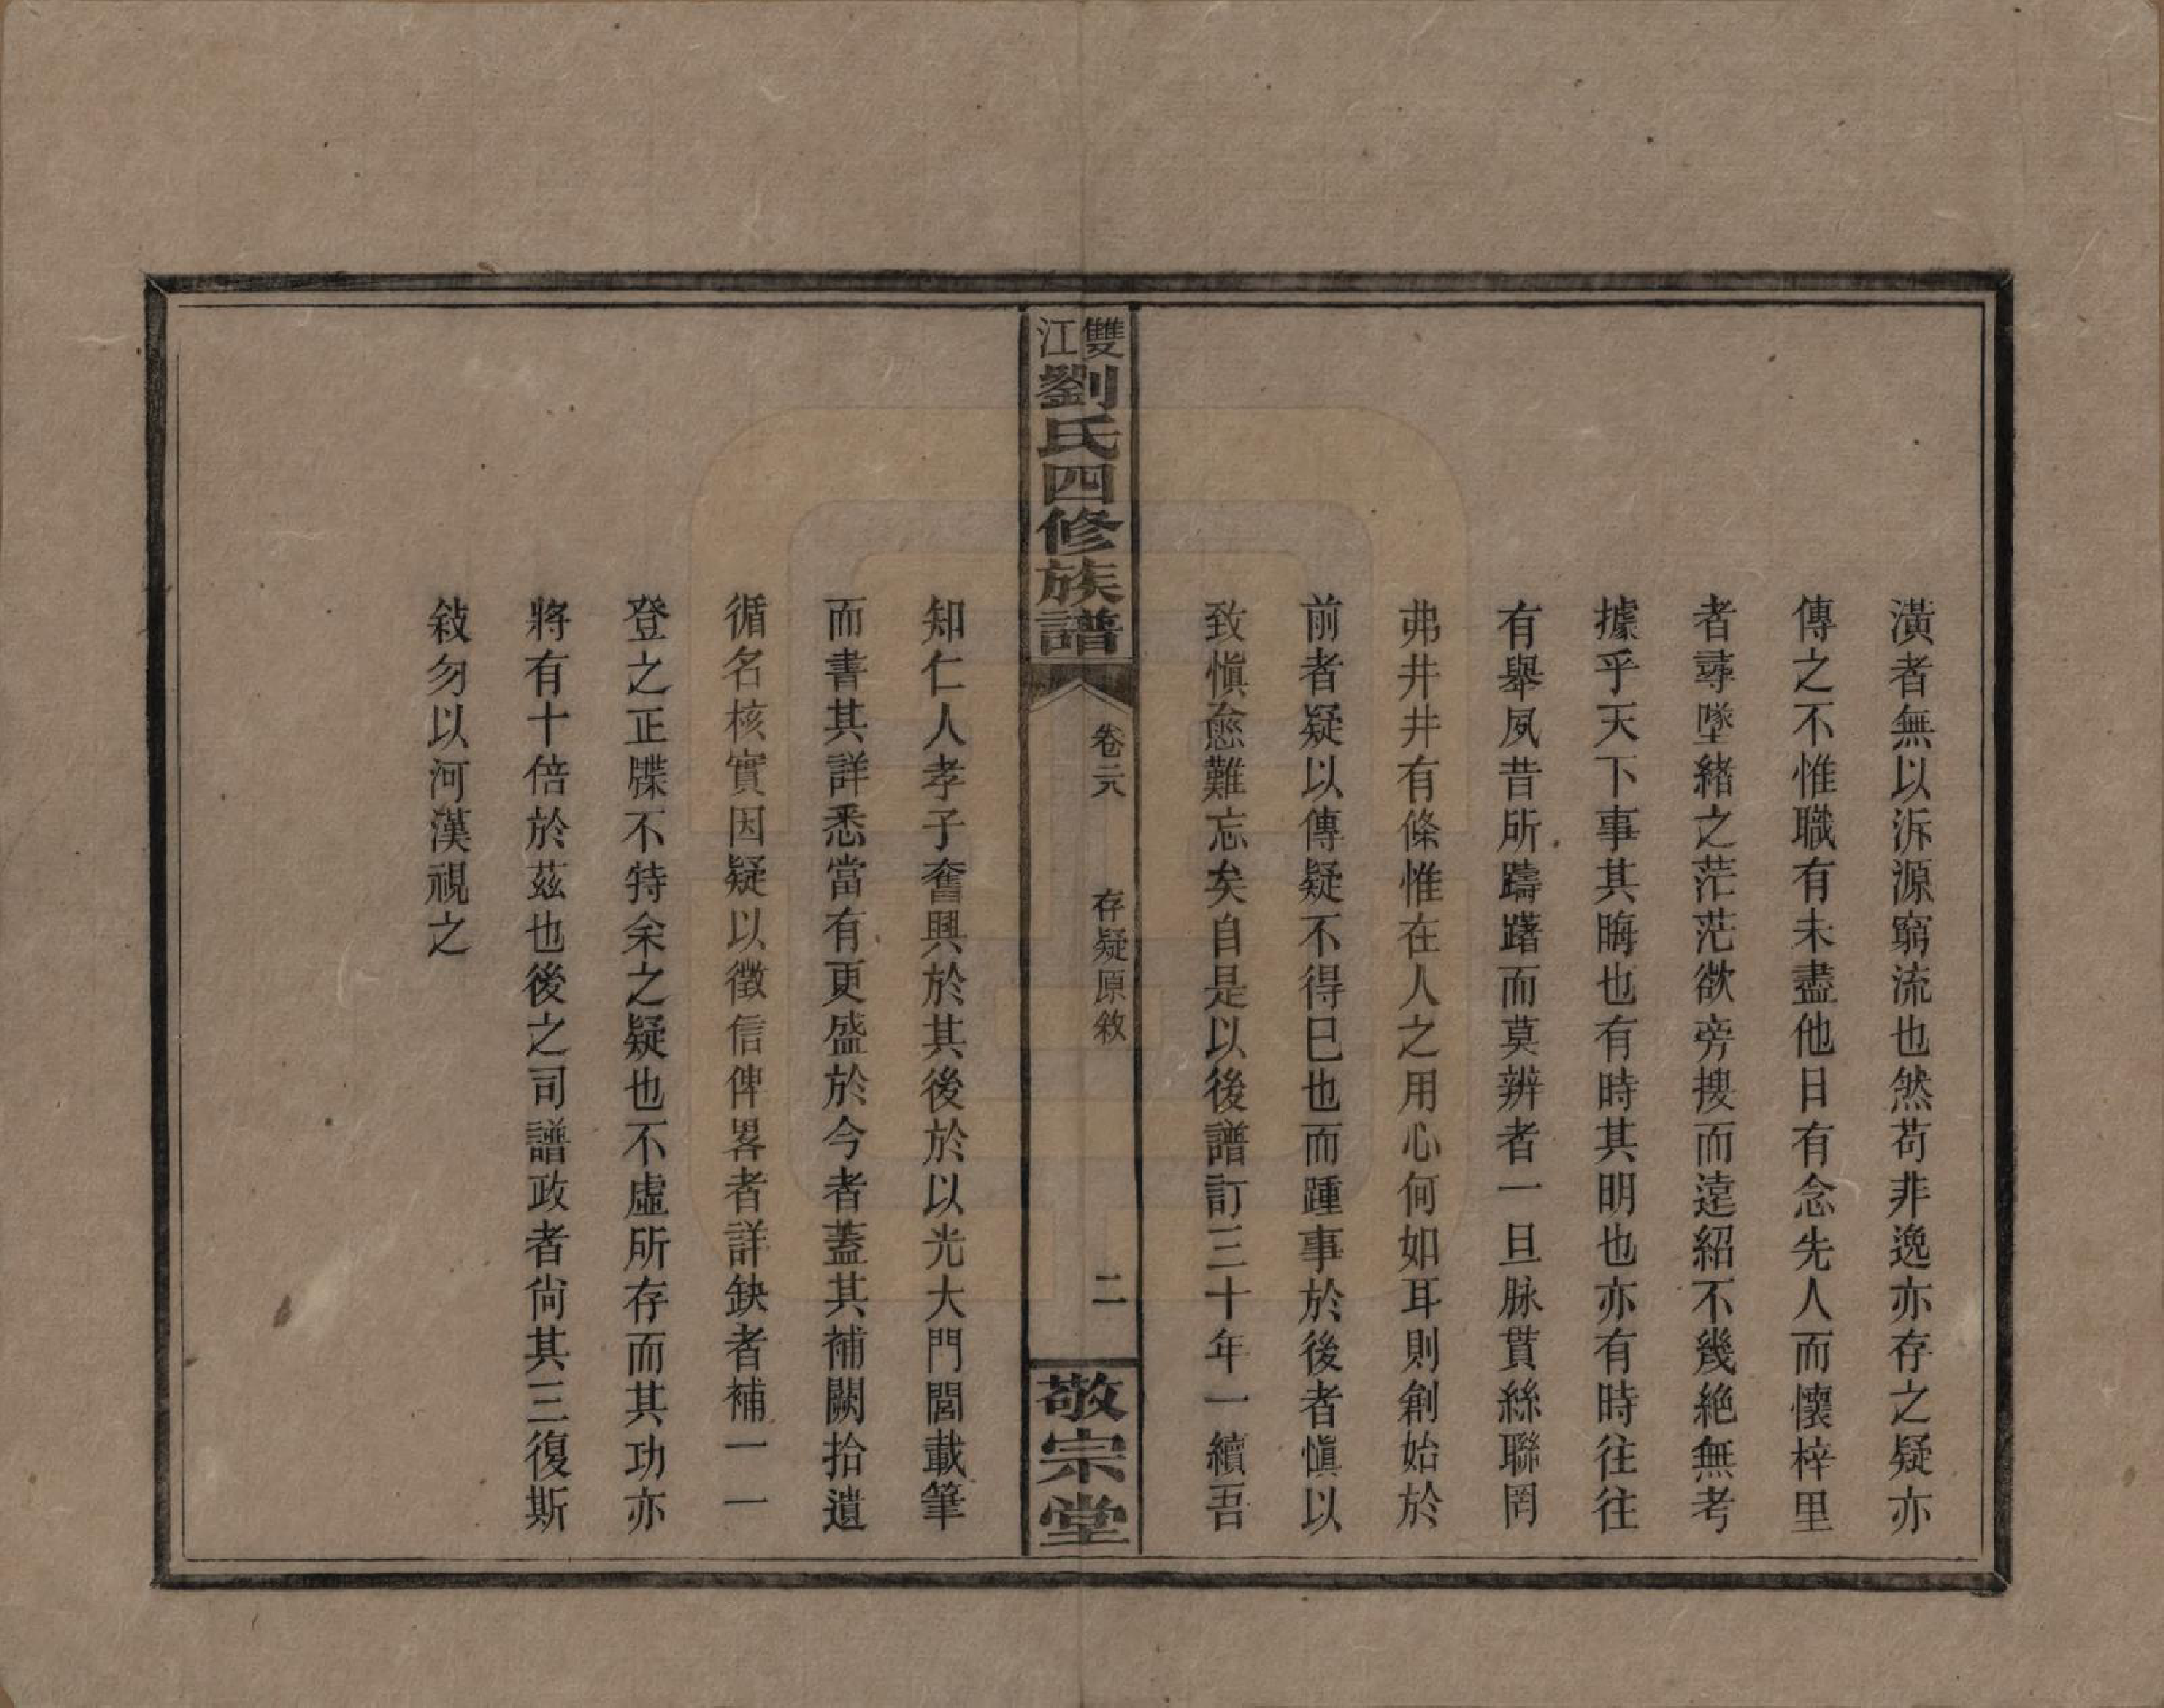 潢者無以泝源窮流也然苟非逸亦存之疑亦
傳之不惟職有未盡他日有念先人而懷梓里
者尋墜緒之茫茫欲旁搜而遠紹不幾絶無考
據乎天下事其晦也有時其明也亦有時往往
有舉夙昔所躊躇而莫辨者一旦脉貫絲聯罔
弗井井有條惟在人之用心何如耳則創始於
前者疑以傳疑不得巳也而踵事於後者愼以
致愼愈難忘矣自是以後譜訂三十年一續吾
雙江劉氏四修族譜
卷元
存疑原敘
二
敬宗堂
知仁人孝子奮興於其後於以光大門閭載筆
而書其詳悉當有更盛於今者蓋其補闕拾遺
循名核實因疑以徵信俾畧者詳缺者補一一
登之正牒不特余之疑也不虛所存而其功亦
將有十倍於茲也後之司譜政者尙其三復斯
敍勿以河漢視之